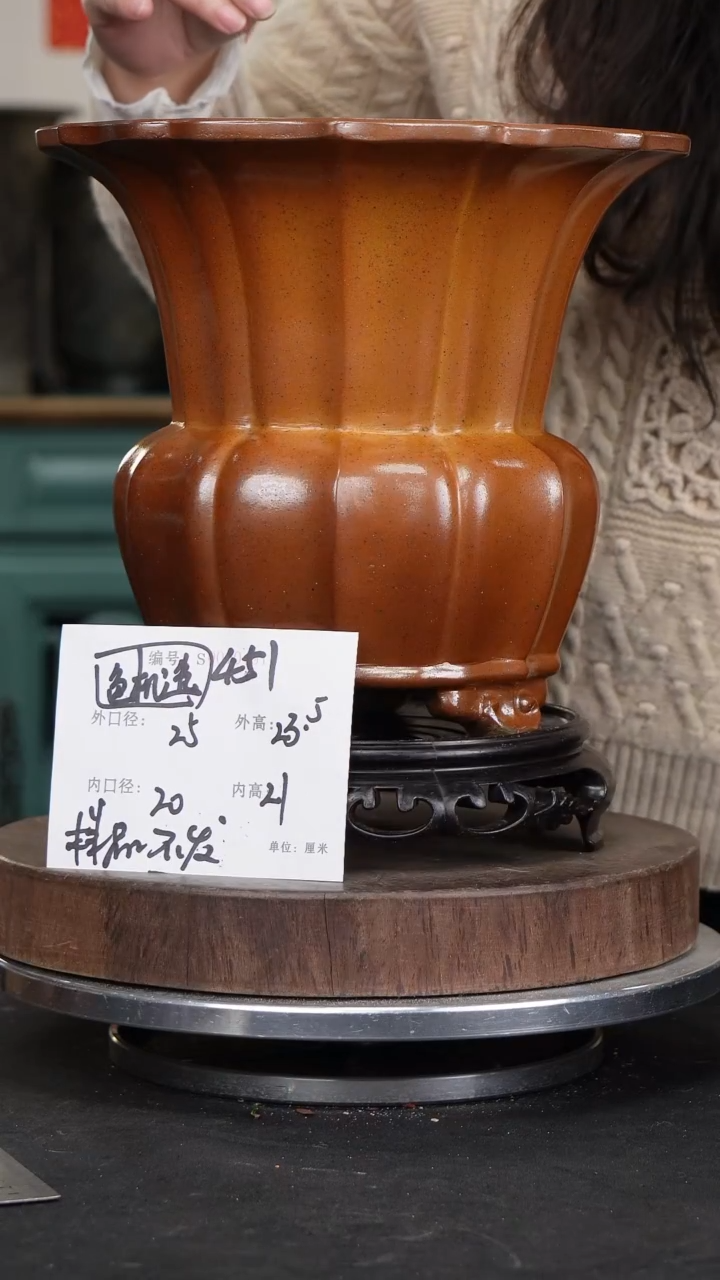 编号 S 451
色机渣
外口径: 25 外高: 23.5
内口径: 20 内高 21
样机不发
单位: 厘米